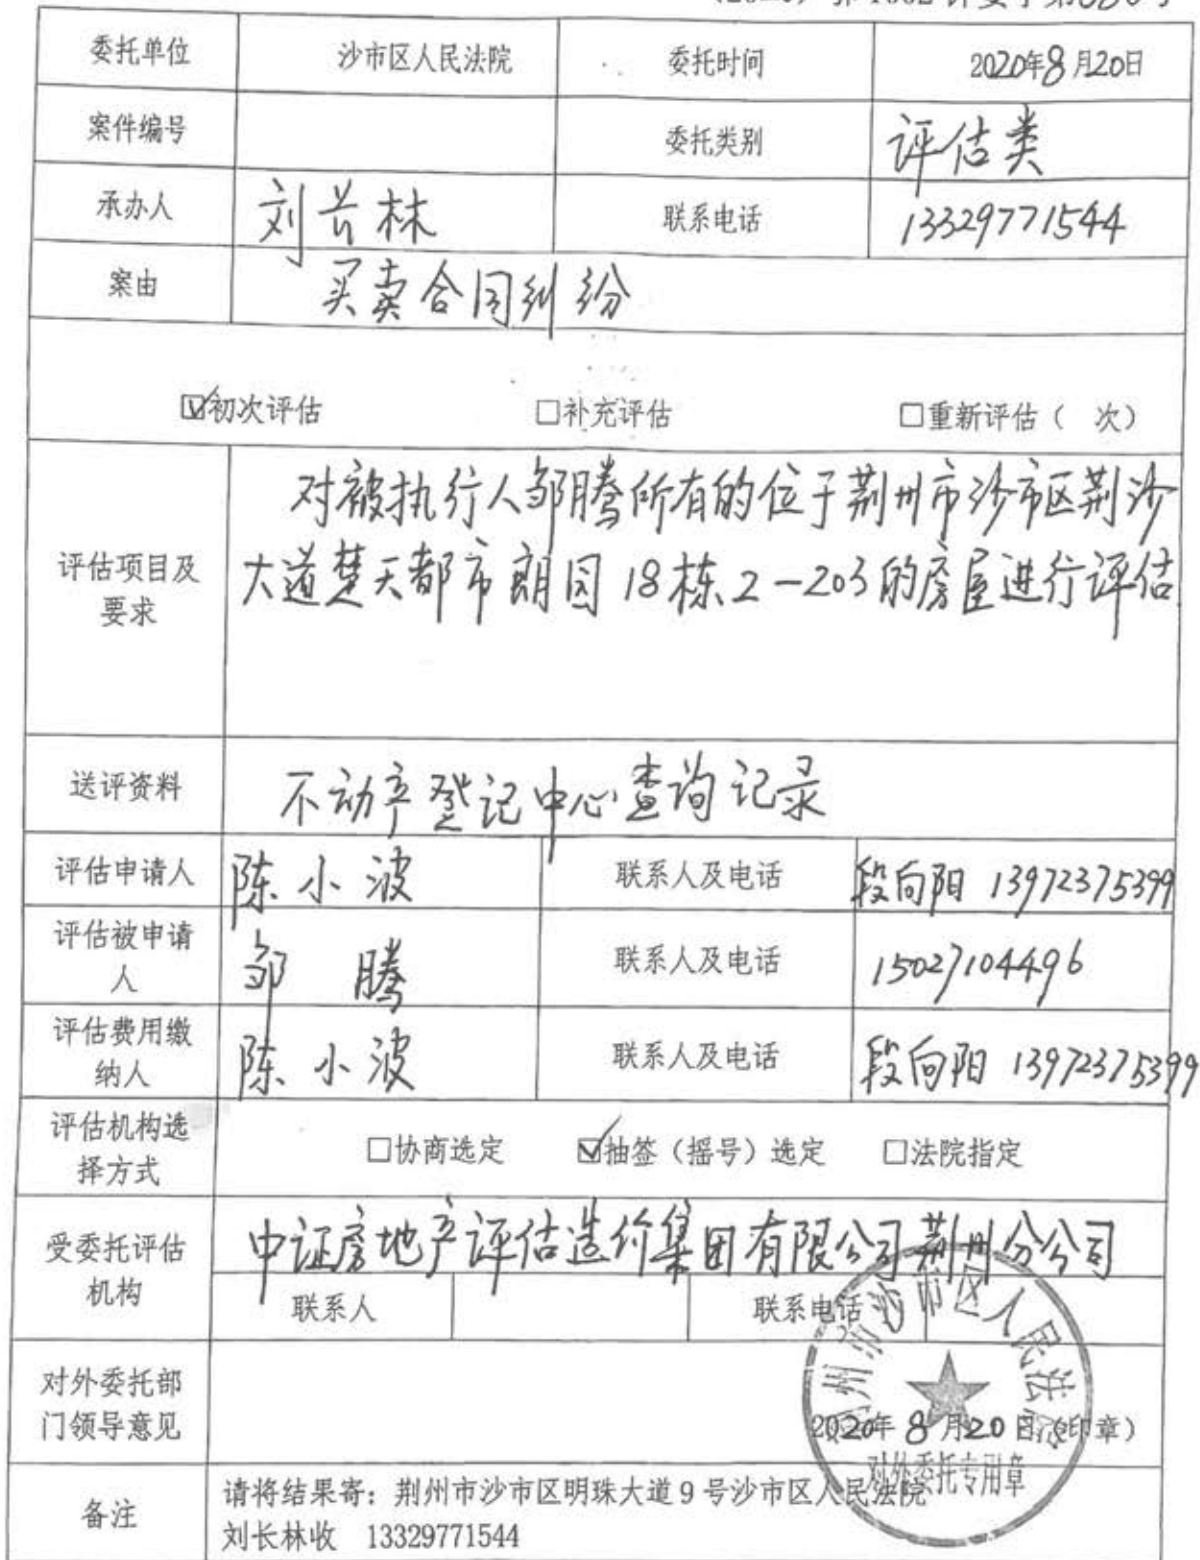 委托单位 沙市区人民法院 委托时间 2020年8月20日
案件编号 委托类别 评估类
承办人 刘长林 联系电话 13329771544
案由 买卖合同纠纷
☑初次评估 □补充评估 □重新评估( 次)
评估项目及要求
对被执行人邹腾所有的位于荆州市沙市区荆沙
大道楚天都市朗园18栋2-203的房屋进行评估
送评资料 不动产登记中心查询记录
评估申请人 陈小波 联系人及电话 段向阳 13972375399
评估被申请人 邹 腾 联系人及电话 15027104496
评估费用缴纳人 陈小波 联系人及电话 段向阳 13972375399
评估机构选择方式 □协商选定 ☑抽签(摇号)选定 □法院指定
受委托评估机构 中证房地产评估造价集团有限公司荆州分公司
联系人 联系电话
荆州市沙市区人民法院
对外委托部门领导意见
2020年8月20日(印章)
对外委托专用章
备注 请将结果寄:荆州市沙市区明珠大道9号沙市区人民法院
刘长林收 13329771544